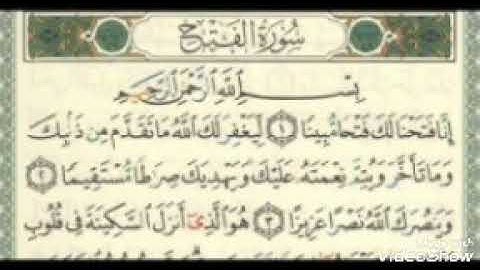 سُورَةُ الفَتْحِ
بِسْمِ اللَّهِ الرَّحْمَٰنِ الرَّحِيمِ
إِنَّا فَتَحْنَا لَكَ فَتْحًا مُّبِينًا ۝١ لِّيَغْفِرَ لَكَ اللَّهُ مَا تَقَدَّمَ مِن ذَنۢبِكَ
وَمَا تَأَخَّرَ وَيُتِمَّ نِعْمَتَهُۥ عَلَيْكَ وَيَهْدِيَكَ صِرَٰطًا مُّسْتَقِيمًا ۝٢
وَيَنصُرَكَ اللَّهُ نَصْرًا عَزِيزًا ۝٣ هُوَ الَّذِىٓ أَنزَلَ السَّكِينَةَ فِى قُلُوبِ
VideoShow